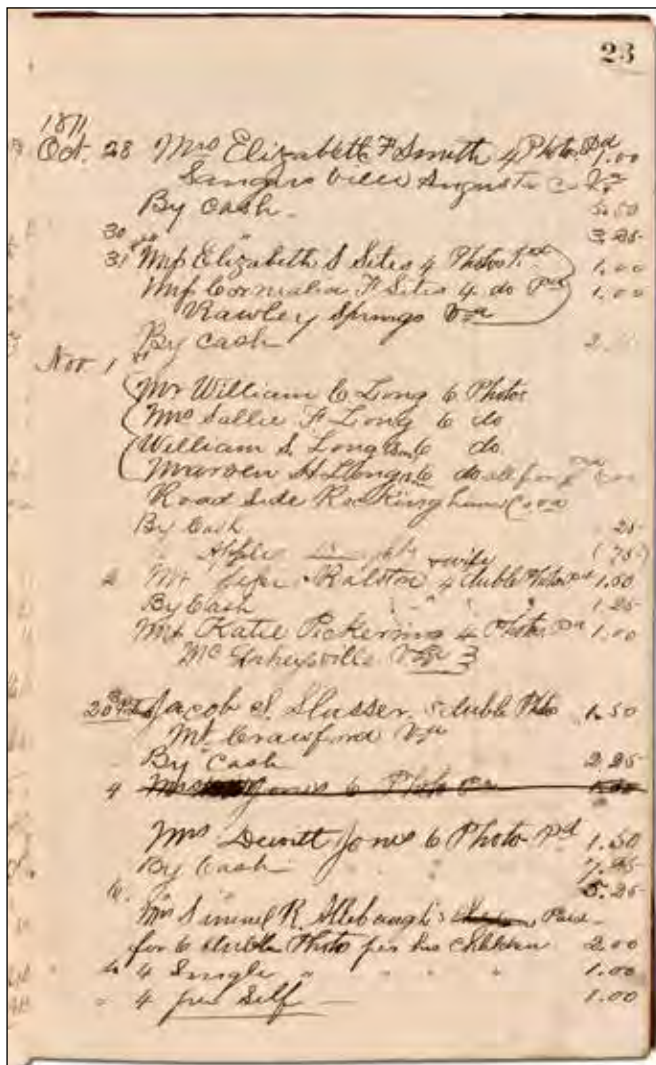 23
1871
Oct. 28 Mrs Elizabeth F Smith 4 Photo Pd 1.00
Sangers Ville Augusta Co Va
By Cash. 5.50
30 " 3.25
31 Miss Elizabeth S Sites 4 Photos Pd 1.00
Miss Cornealia F Sites 4 do Pd 1.00
Rawley Springs Va
By Cash 2
Nov 1st
Mr William C Long 6 Photos
Mrs Sallie F Long 6 do
William S. Long 6 do
H Long 6 do all for
Road Side Rockingham Co va
By Cash 25
Apples (75)
2 Mr Ralston & wife 4 duble Photo Pd 1.50
By Cash " " " 1.25
Miss Katie Pickering 4 Photos Pd 1.00
Mc Gaheysville Va 3
Jacob S. Slusser, duble Photo 1.50
Mt Crawford Va
By Cash 2.25
4 Mrs Jones 6 Photo Pd 1.50
Mrs Dewitt Jones 6 Photo Pd 1.50
By Cash
5.25
R. Allebaugh's Paid
for 6 duble Photo for his Children 2.00
" 4 Single " " " " 1.00
" 4 for Self 1.00